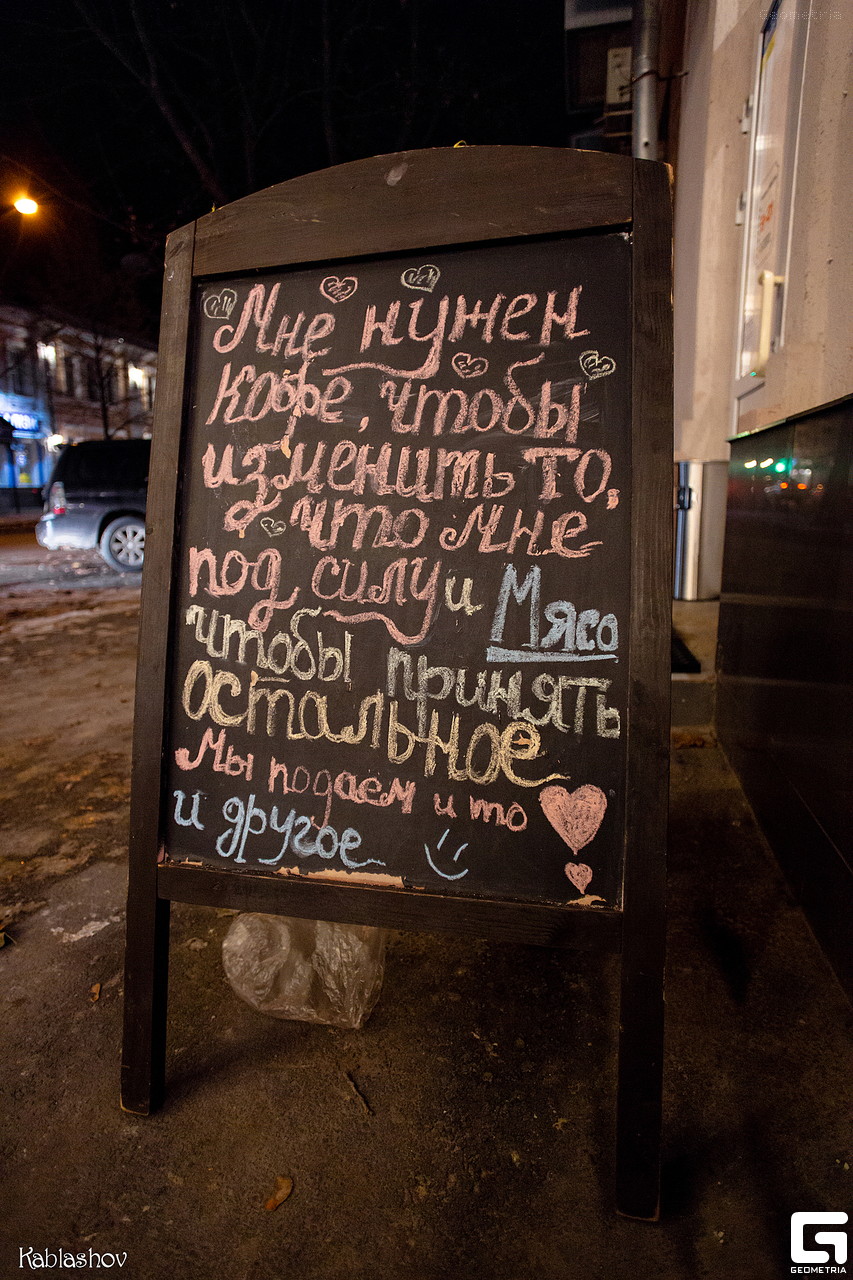 Geometria
Мне нужен
кофе, чтобы
изменить то,
что мне
под силу и Мясо
чтобы принять
остальное
Мы подаем и то
и другое
Kablashov
GEOMETRIA